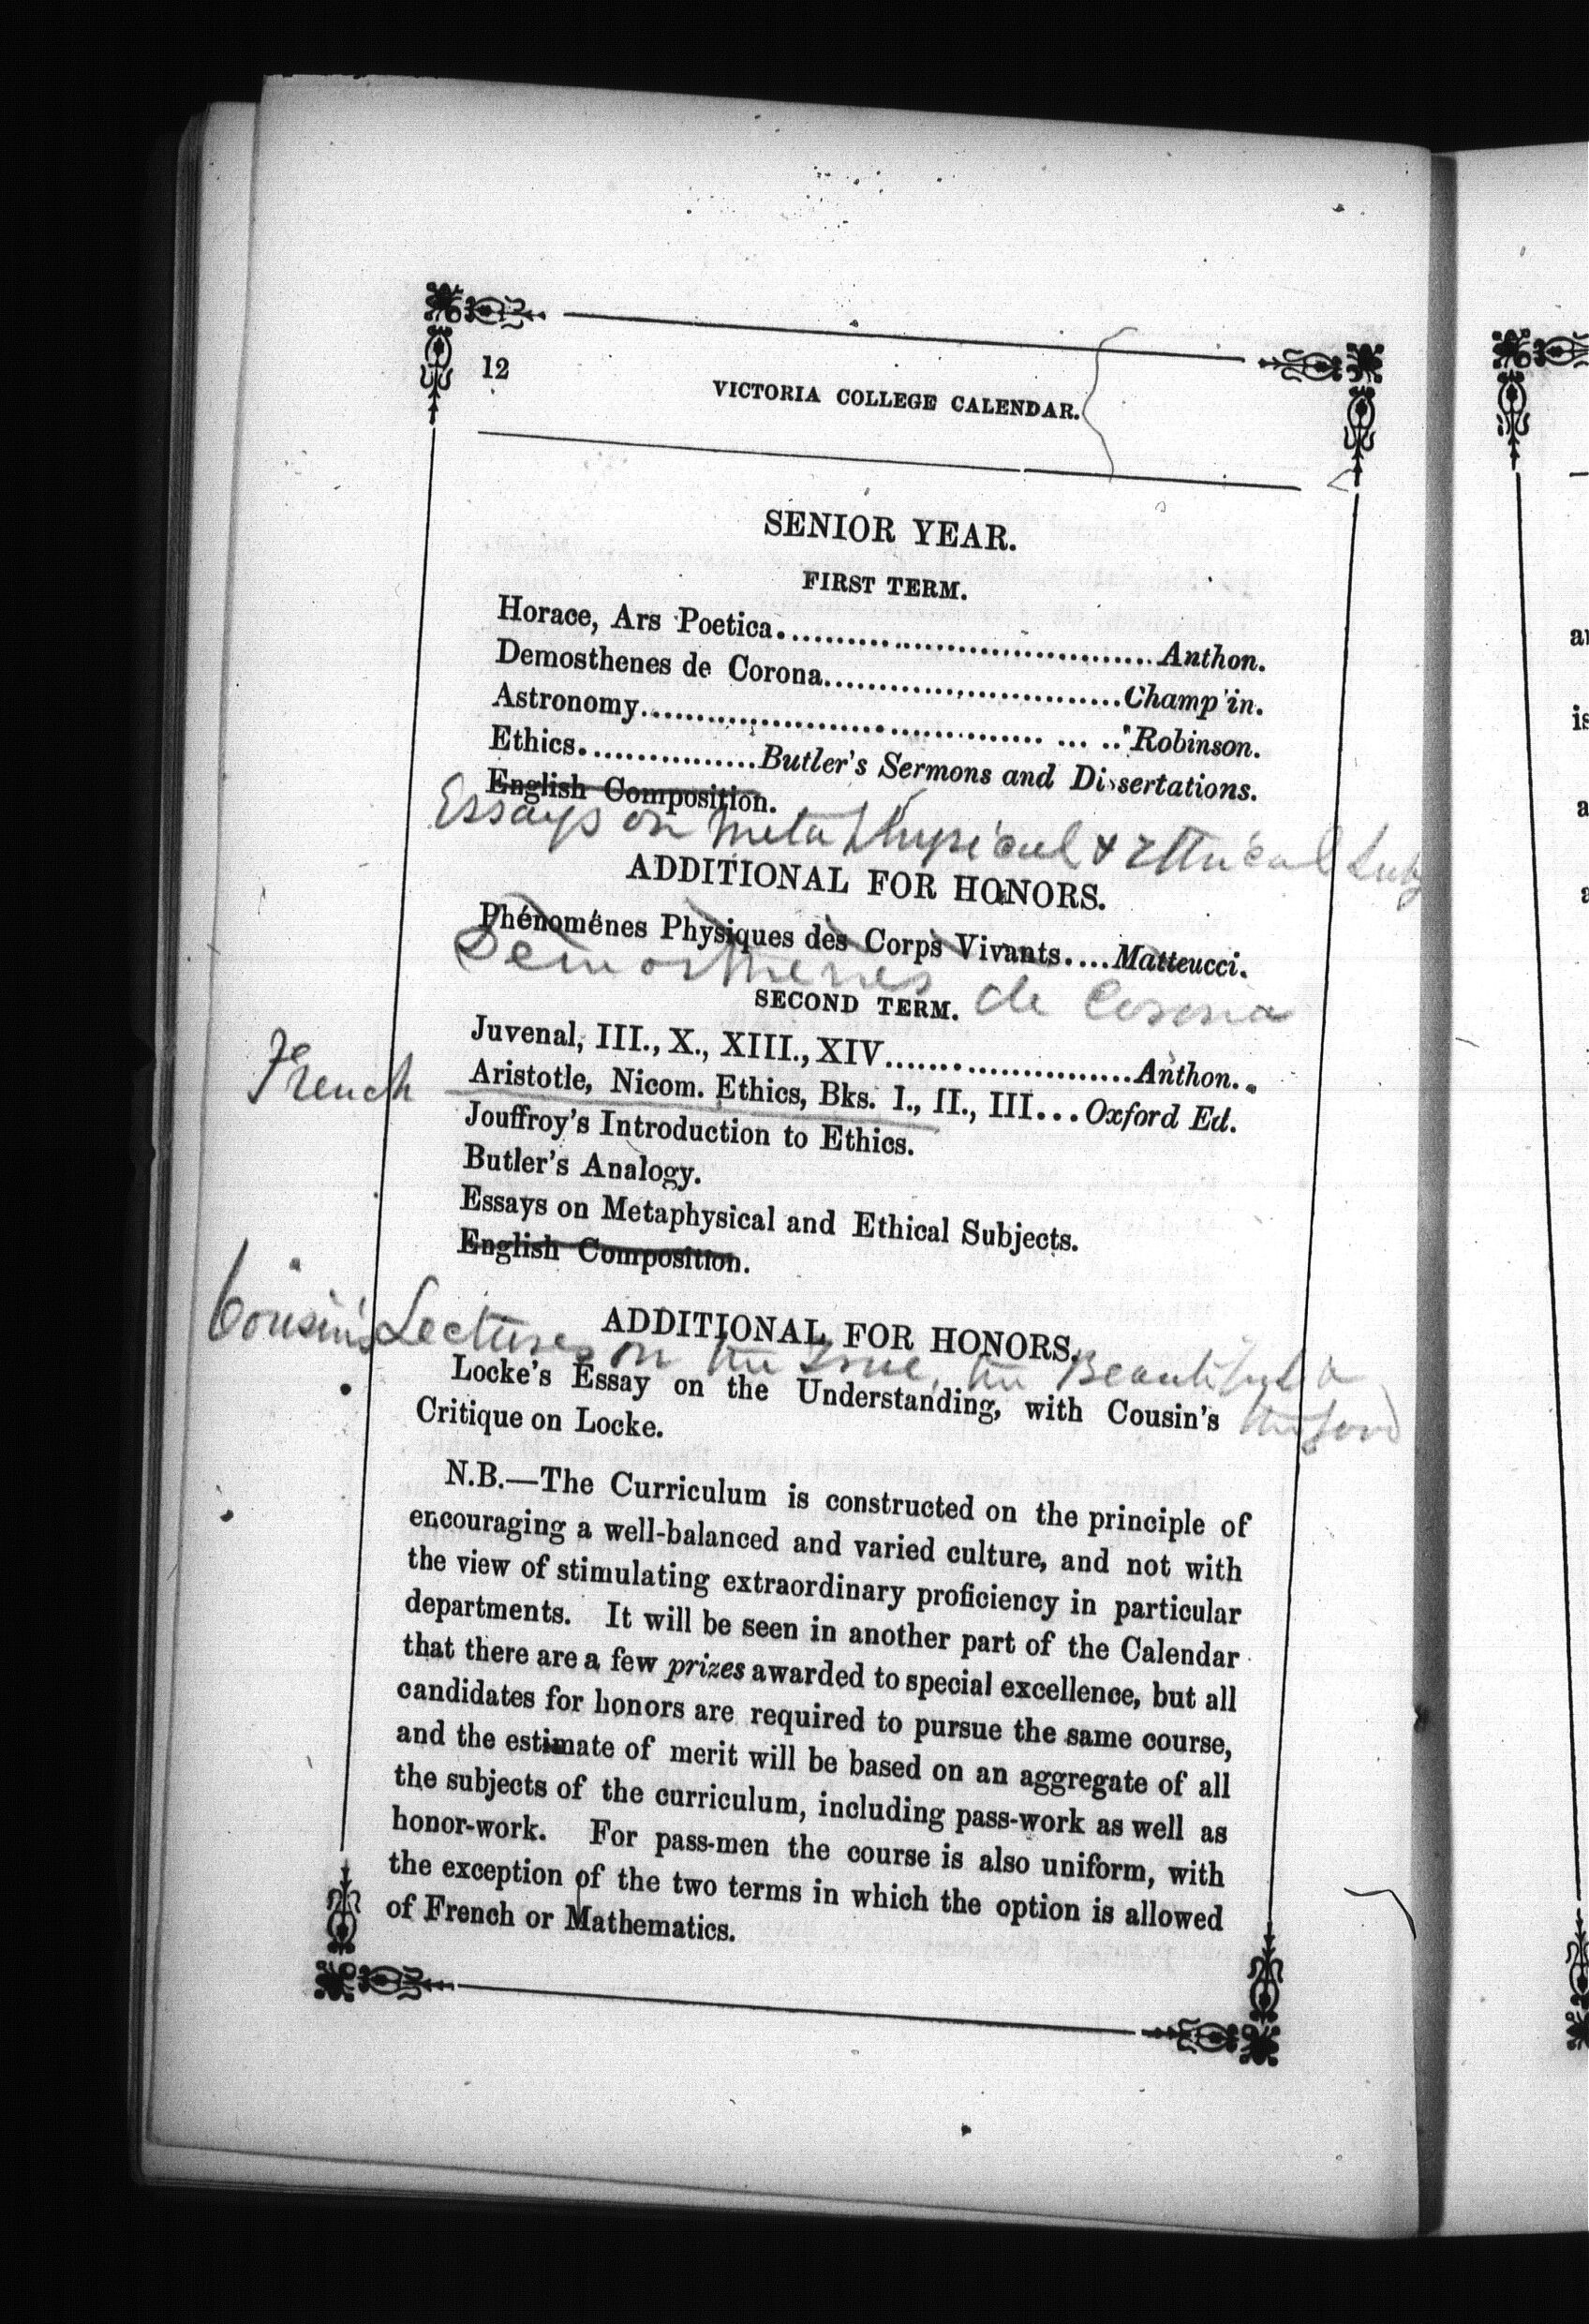 12
VICTORIA COLLEGE CALENDAR.
SENIOR YEAR.
FIRST TERM.
Horace, Ars Poetica........................................Anthon.
Demosthenes de Corona................................Champ'in.
Astronomy............................................ ... ..Robinson.
Ethics................Butler's Sermons and Dissertations.
English Composition.
Essays on Metaphysical & Ethical Subj
ADDITIONAL FOR HONORS.
Phénoménes Physiques des Corps Vivants....Matteucci.
Demosthenes de Corona
SECOND TERM.
Juvenal, III., X., XIII., XIV..........................Anthon..
French
Aristotle, Nicom. Ethics, Bks. I., II., III...Oxford Ed.
Jouffroy's Introduction to Ethics.
Butler's Analogy.
Essays on Metaphysical and Ethical Subjects.
English Composition.
ADDITIONAL FOR HONORS.
Cousin's Lectures on the True, the Beautiful &
Locke's Essay on the Understanding, with Cousin's
Critique on Locke.
N.B.—The Curriculum is constructed on the principle of
encouraging a well-balanced and varied culture, and not with
the view of stimulating extraordinary proficiency in particular
departments. It will be seen in another part of the Calendar
that there are a few prizes awarded to special excellence, but all
candidates for honors are required to pursue the same course,
and the estimate of merit will be based on an aggregate of all
the subjects of the curriculum, including pass-work as well as
honor-work. For pass-men the course is also uniform, with
the exception of the two terms in which the option is allowed
of French or Mathematics.